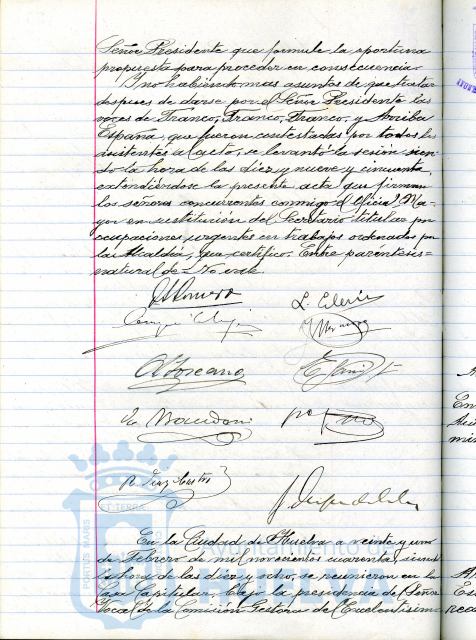 Señor Presidente que formule la oportuna
propuesta para proceder en consecuencia.
Y no habiendo mas asuntos de que tratar
despues de darse por el Señor Presidente las
voces de Franco, Franco, Franco, y Arriba
España, que fueron contestadas por todos los
asistentes al acto, se levantó la sesión sien-
do la hora de las diez y nueve y cincuenta,
extendiéndose la presente acta que firman
los señores concurrentes conmigo el Oficial Ma-
yor en sustitución del Secretario titular por
ocupaciones urgentes en trabajos ordenados por
la Alcaldía, que certifico. Entre paréntesis=
natural de= No vale
En la Ciudad de Huelva a veinte y uno
de Febrero de mil novecientos cuarenta, siendo
la hora de las diez y ocho, se reunieron en la
Casa Capitular, bajo la presidencia del Señor
Vocal de la Comisión Gestora del Excelentísimo
PORTUS MARIS
ET TERRÆ
Ayuntamiento de
HUELVA